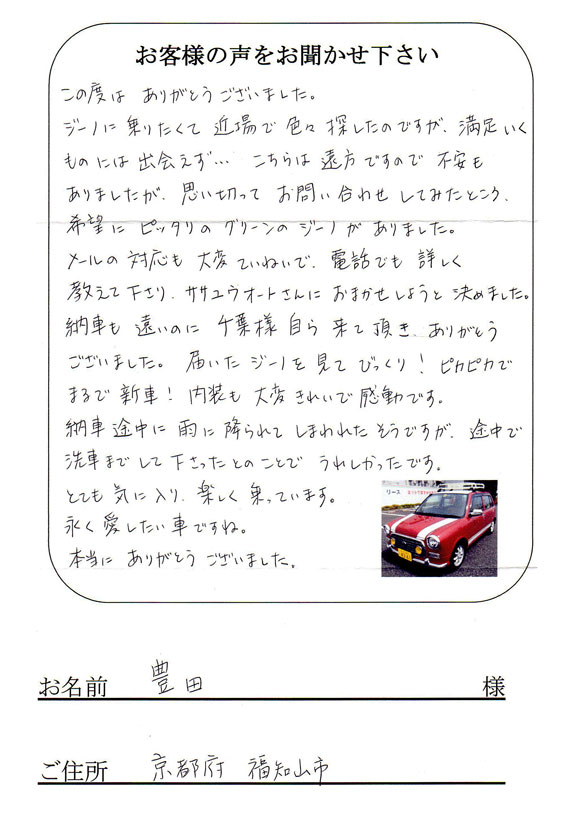 お客様の声をお聞かせ下さい
この度は ありがとうございました。
ジーノに乗りたくて 近場で色々探したのですが、満足いく
ものには出会えず… こちらは遠方ですので不安も
ありましたが、思い切って お問い合わせしてみたところ、
希望にピッタリのグリーンのジーノがありました。
メールの対応も大変ていねいで、電話でも詳しく
教えて下さり、ササユウオートさんにおまかせしようと決めました。
納車も遠いのに 千葉様自ら来て頂き、ありがとう
ございました。 届いたジーノを見てびっくり！ピカピカで
まるで新車！ 内装も大変きれいで感動です。
納車途中に雨に降られてしまわれたそうですが、途中で
洗車までして下さったとのことで うれしかったです。
とても気に入り、楽しく乗っています。
永く愛したい車ですね。
本当に ありがとうございました。
リース
お名前 豊田 様
ご住所 京都府 福知山市